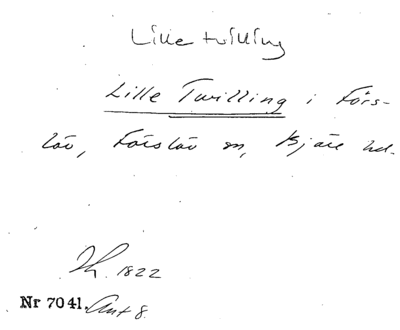 Lille tvilling
Lille Tvilling i Förs-
löv, Förslöv sn, Bjäre hd.
1822
Nr 7041. Ant 8.